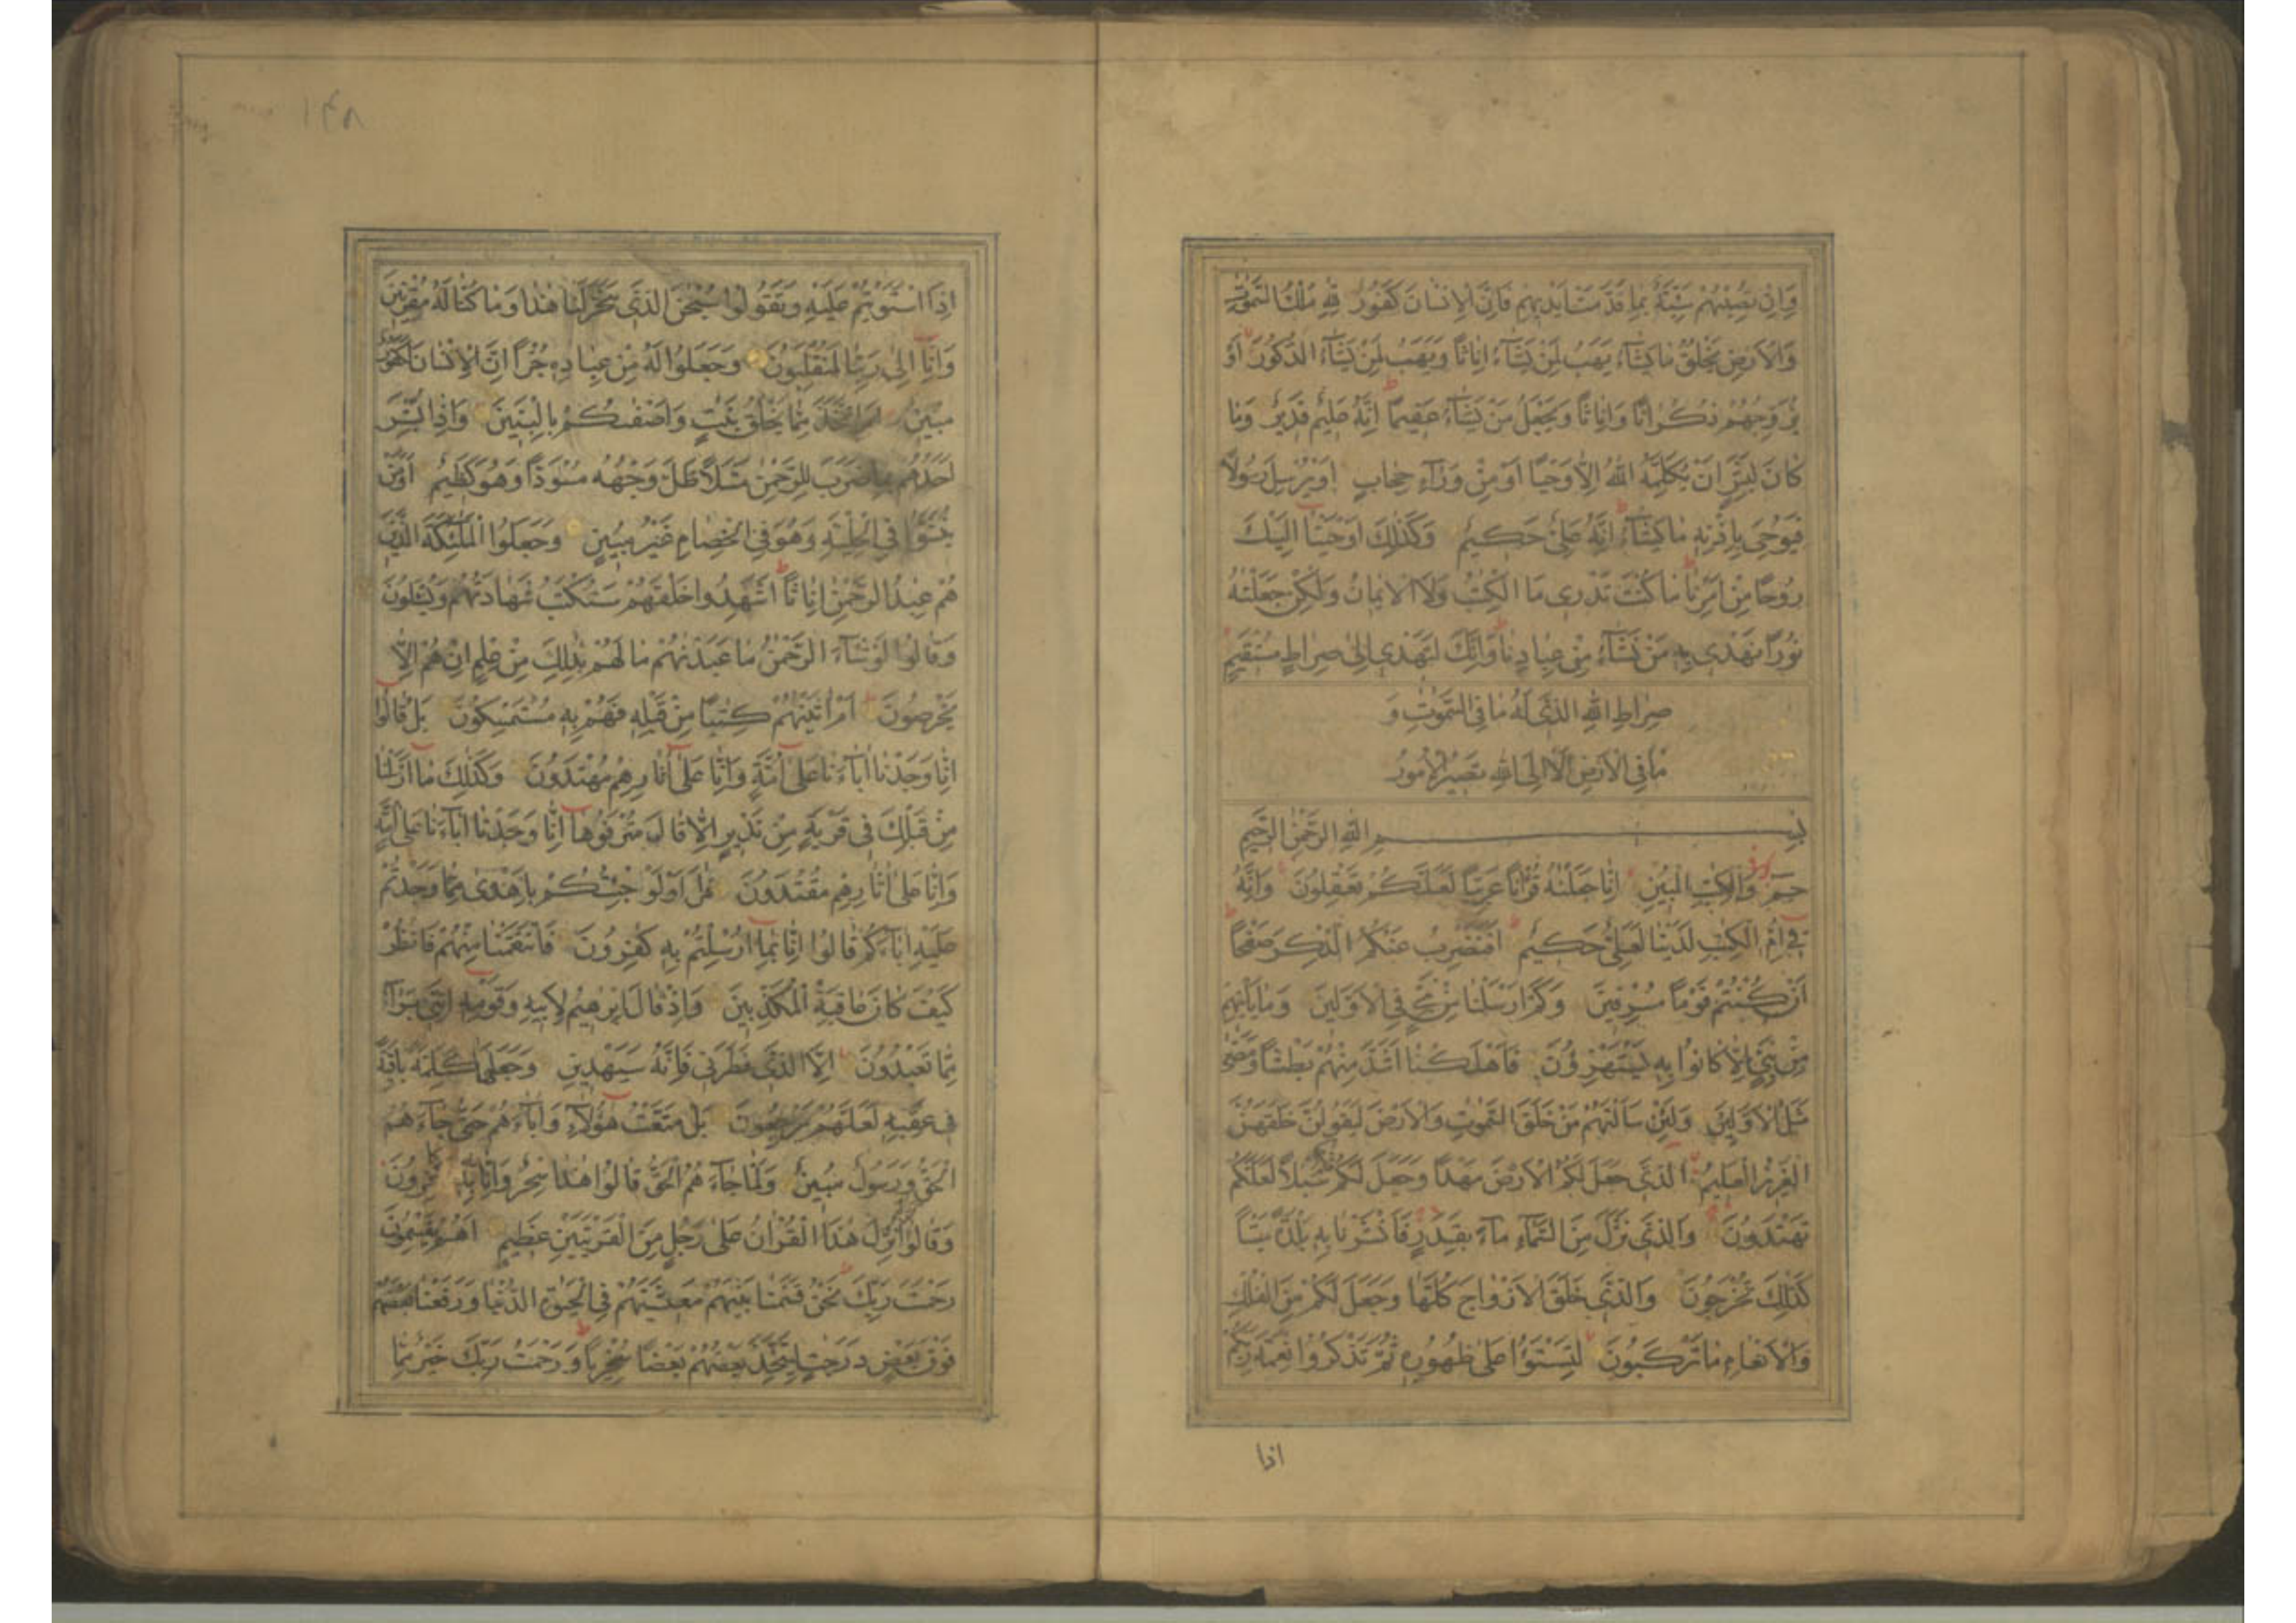 وَاِنْ تُصِبْهُمْ سَيِّئَةٌ بِمَا قَدَّمَتْ اَيْدِيهِمْ فَاِنَّ الْاِنْسَانَ كَفُورٌ لِلّٰهِ مُلْكُ السَّمٰوٰتِ
وَالْاَرْضِ يَخْلُقُ مَا يَشَآءُ يَهَبُ لِمَنْ يَشَآءُ اِنَاثًا وَيَهَبُ لِمَنْ يَشَآءُ الذُّكُورَ اَوْ
يُزَوِّجُهُمْ ذُكْرَانًا وَاِنَاثًا وَيَجْعَلُ مَنْ يَشَآءُ عَقِيمًا اِنَّهُ عَلِيمٌ قَدِيرٌ وَمَا
كَانَ لِبَشَرٍ اَنْ يُكَلِّمَهُ اللّٰهُ اِلَّا وَحْيًا اَوْ مِنْ وَرَآءِ حِجَابٍ اَوْ يُرْسِلَ رَسُولًا
فَيُوحِيَ بِاِذْنِهِ مَا يَشَآءُ اِنَّهُ عَلِيٌّ حَكِيمٌ وَكَذٰلِكَ اَوْحَيْنَا اِلَيْكَ
رُوحًا مِنْ اَمْرِنَا مَا كُنْتَ تَدْرِي مَا الْكِتٰبُ وَلَا الْاِيمَانُ وَلٰكِنْ جَعَلْنٰهُ
نُورًا نَهْدِي بِهِ مَنْ نَشَآءُ مِنْ عِبَادِنَا وَاِنَّكَ لَتَهْدِي اِلٰى صِرَاطٍ مُسْتَقِيمٍ
صِرَاطِ اللّٰهِ الَّذِي لَهُ مَا فِي السَّمٰوٰتِ وَ
مَا فِي الْاَرْضِ اَلَا اِلَى اللّٰهِ تَصِيرُ الْاُمُورُ
بِسْمِ اللّٰهِ الرَّحْمٰنِ الرَّحِيمِ
حٰمٓ وَالْكِتٰبِ الْمُبِينِ اِنَّا جَعَلْنٰهُ قُرْاٰنًا عَرَبِيًّا لَعَلَّكُمْ تَعْقِلُونَ وَاِنَّهُ
فِي اُمِّ الْكِتٰبِ لَدَيْنَا لَعَلِيٌّ حَكِيمٌ اَفَنَضْرِبُ عَنْكُمُ الذِّكْرَ صَفْحًا
اَنْ كُنْتُمْ قَوْمًا مُسْرِفِينَ وَكَمْ اَرْسَلْنَا مِنْ نَبِيٍّ فِي الْاَوَّلِينَ وَمَا يَاْتِيهِمْ
مِنْ نَبِيٍّ اِلَّا كَانُوا بِهِ يَسْتَهْزِؤُنَ فَاَهْلَكْنَا اَشَدَّ مِنْهُمْ بَطْشًا وَمَضٰى
مَثَلُ الْاَوَّلِينَ وَلَئِنْ سَاَلْتَهُمْ مَنْ خَلَقَ السَّمٰوٰتِ وَالْاَرْضَ لَيَقُولُنَّ خَلَقَهُنَّ
الْعَزِيزُ الْعَلِيمُ الَّذِي جَعَلَ لَكُمُ الْاَرْضَ مَهْدًا وَجَعَلَ لَكُمْ فِيهَا سُبُلًا لَعَلَّكُمْ
تَهْتَدُونَ وَالَّذِي نَزَّلَ مِنَ السَّمَآءِ مَآءً بِقَدَرٍ فَاَنْشَرْنَا بِهِ بَلْدَةً مَيْتًا
كَذٰلِكَ تُخْرَجُونَ وَالَّذِي خَلَقَ الْاَزْوَاجَ كُلَّهَا وَجَعَلَ لَكُمْ مِنَ الْفُلْكِ
وَالْاَنْعَامِ مَا تَرْكَبُونَ لِتَسْتَوُا عَلٰى ظُهُورِهِ ثُمَّ تَذْكُرُوا نِعْمَةَ رَبِّكُمْ
اذا
١٤٨
اِذَا اسْتَوَيْتُمْ عَلَيْهِ وَتَقُولُوا سُبْحٰنَ الَّذِي سَخَّرَ لَنَا هٰذَا وَمَا كُنَّا لَهُ مُقْرِنِينَ
وَاِنَّا اِلٰى رَبِّنَا لَمُنْقَلِبُونَ وَجَعَلُوا لَهُ مِنْ عِبَادِهِ جُزْءًا اِنَّ الْاِنْسَانَ لَكَفُورٌ
مُبِينٌ اَمِ اتَّخَذَ مِمَّا يَخْلُقُ بَنٰتٍ وَاَصْفٰىكُمْ بِالْبَنِينَ وَاِذَا بُشِّرَ
اَحَدُهُمْ بِمَا ضَرَبَ لِلرَّحْمٰنِ مَثَلًا ظَلَّ وَجْهُهُ مُسْوَدًّا وَهُوَ كَظِيمٌ اَوَمَنْ
يُنَشَّؤُا فِي الْحِلْيَةِ وَهُوَ فِي الْخِصَامِ غَيْرُ مُبِينٍ وَجَعَلُوا الْمَلٰٓئِكَةَ الَّذِينَ
هُمْ عِبٰدُ الرَّحْمٰنِ اِنَاثًا اَشَهِدُوا خَلْقَهُمْ سَتُكْتَبُ شَهَادَتُهُمْ وَيُسْئَلُونَ
وَقَالُوا لَوْ شَآءَ الرَّحْمٰنُ مَا عَبَدْنٰهُمْ مَا لَهُمْ بِذٰلِكَ مِنْ عِلْمٍ اِنْ هُمْ اِلَّا
يَخْرُصُونَ اَمْ اٰتَيْنٰهُمْ كِتٰبًا مِنْ قَبْلِهِ فَهُمْ بِهِ مُسْتَمْسِكُونَ بَلْ قَالُوا
اِنَّا وَجَدْنَا اٰبَآءَنَا عَلٰى اُمَّةٍ وَاِنَّا عَلٰى اٰثَارِهِمْ مُهْتَدُونَ وَكَذٰلِكَ مَا اَرْسَلْنَا
مِنْ قَبْلِكَ فِي قَرْيَةٍ مِنْ نَذِيرٍ اِلَّا قَالَ مُتْرَفُوهَا اِنَّا وَجَدْنَا اٰبَآءَنَا عَلٰى اُمَّةٍ
وَاِنَّا عَلٰى اٰثَارِهِمْ مُقْتَدُونَ قٰلَ اَوَلَوْ جِئْتُكُمْ بِاَهْدٰى مِمَّا وَجَدْتُمْ
عَلَيْهِ اٰبَآءَكُمْ قَالُوا اِنَّا بِمَا اُرْسِلْتُمْ بِهِ كٰفِرُونَ فَانْتَقَمْنَا مِنْهُمْ فَانْظُرْ
كَيْفَ كَانَ عَاقِبَةُ الْمُكَذِّبِينَ وَاِذْ قَالَ اِبْرٰهِيمُ لِاَبِيهِ وَقَوْمِهِ اِنَّنِي بَرَآءٌ
مِمَّا تَعْبُدُونَ اِلَّا الَّذِي فَطَرَنِي فَاِنَّهُ سَيَهْدِينِ وَجَعَلَهَا كَلِمَةً بَاقِيَةً
فِي عَقِبِهِ لَعَلَّهُمْ يَرْجِعُونَ بَلْ مَتَّعْتُ هٰٓؤُلَآءِ وَاٰبَآءَهُمْ حَتّٰى جَآءَهُمُ
الْحَقُّ وَرَسُولٌ مُبِينٌ وَلَمَّا جَآءَهُمُ الْحَقُّ قَالُوا هٰذَا سِحْرٌ وَاِنَّا بِهِ كٰفِرُونَ
وَقَالُوا لَوْلَا نُزِّلَ هٰذَا الْقُرْاٰنُ عَلٰى رَجُلٍ مِنَ الْقَرْيَتَيْنِ عَظِيمٍ اَهُمْ يَقْسِمُونَ
رَحْمَتَ رَبِّكَ نَحْنُ قَسَمْنَا بَيْنَهُمْ مَعِيشَتَهُمْ فِي الْحَيٰوةِ الدُّنْيَا وَرَفَعْنَا بَعْضَهُمْ
فَوْقَ بَعْضٍ دَرَجٰتٍ لِيَتَّخِذَ بَعْضُهُمْ بَعْضًا سُخْرِيًّا وَرَحْمَتُ رَبِّكَ خَيْرٌ مِمَّا